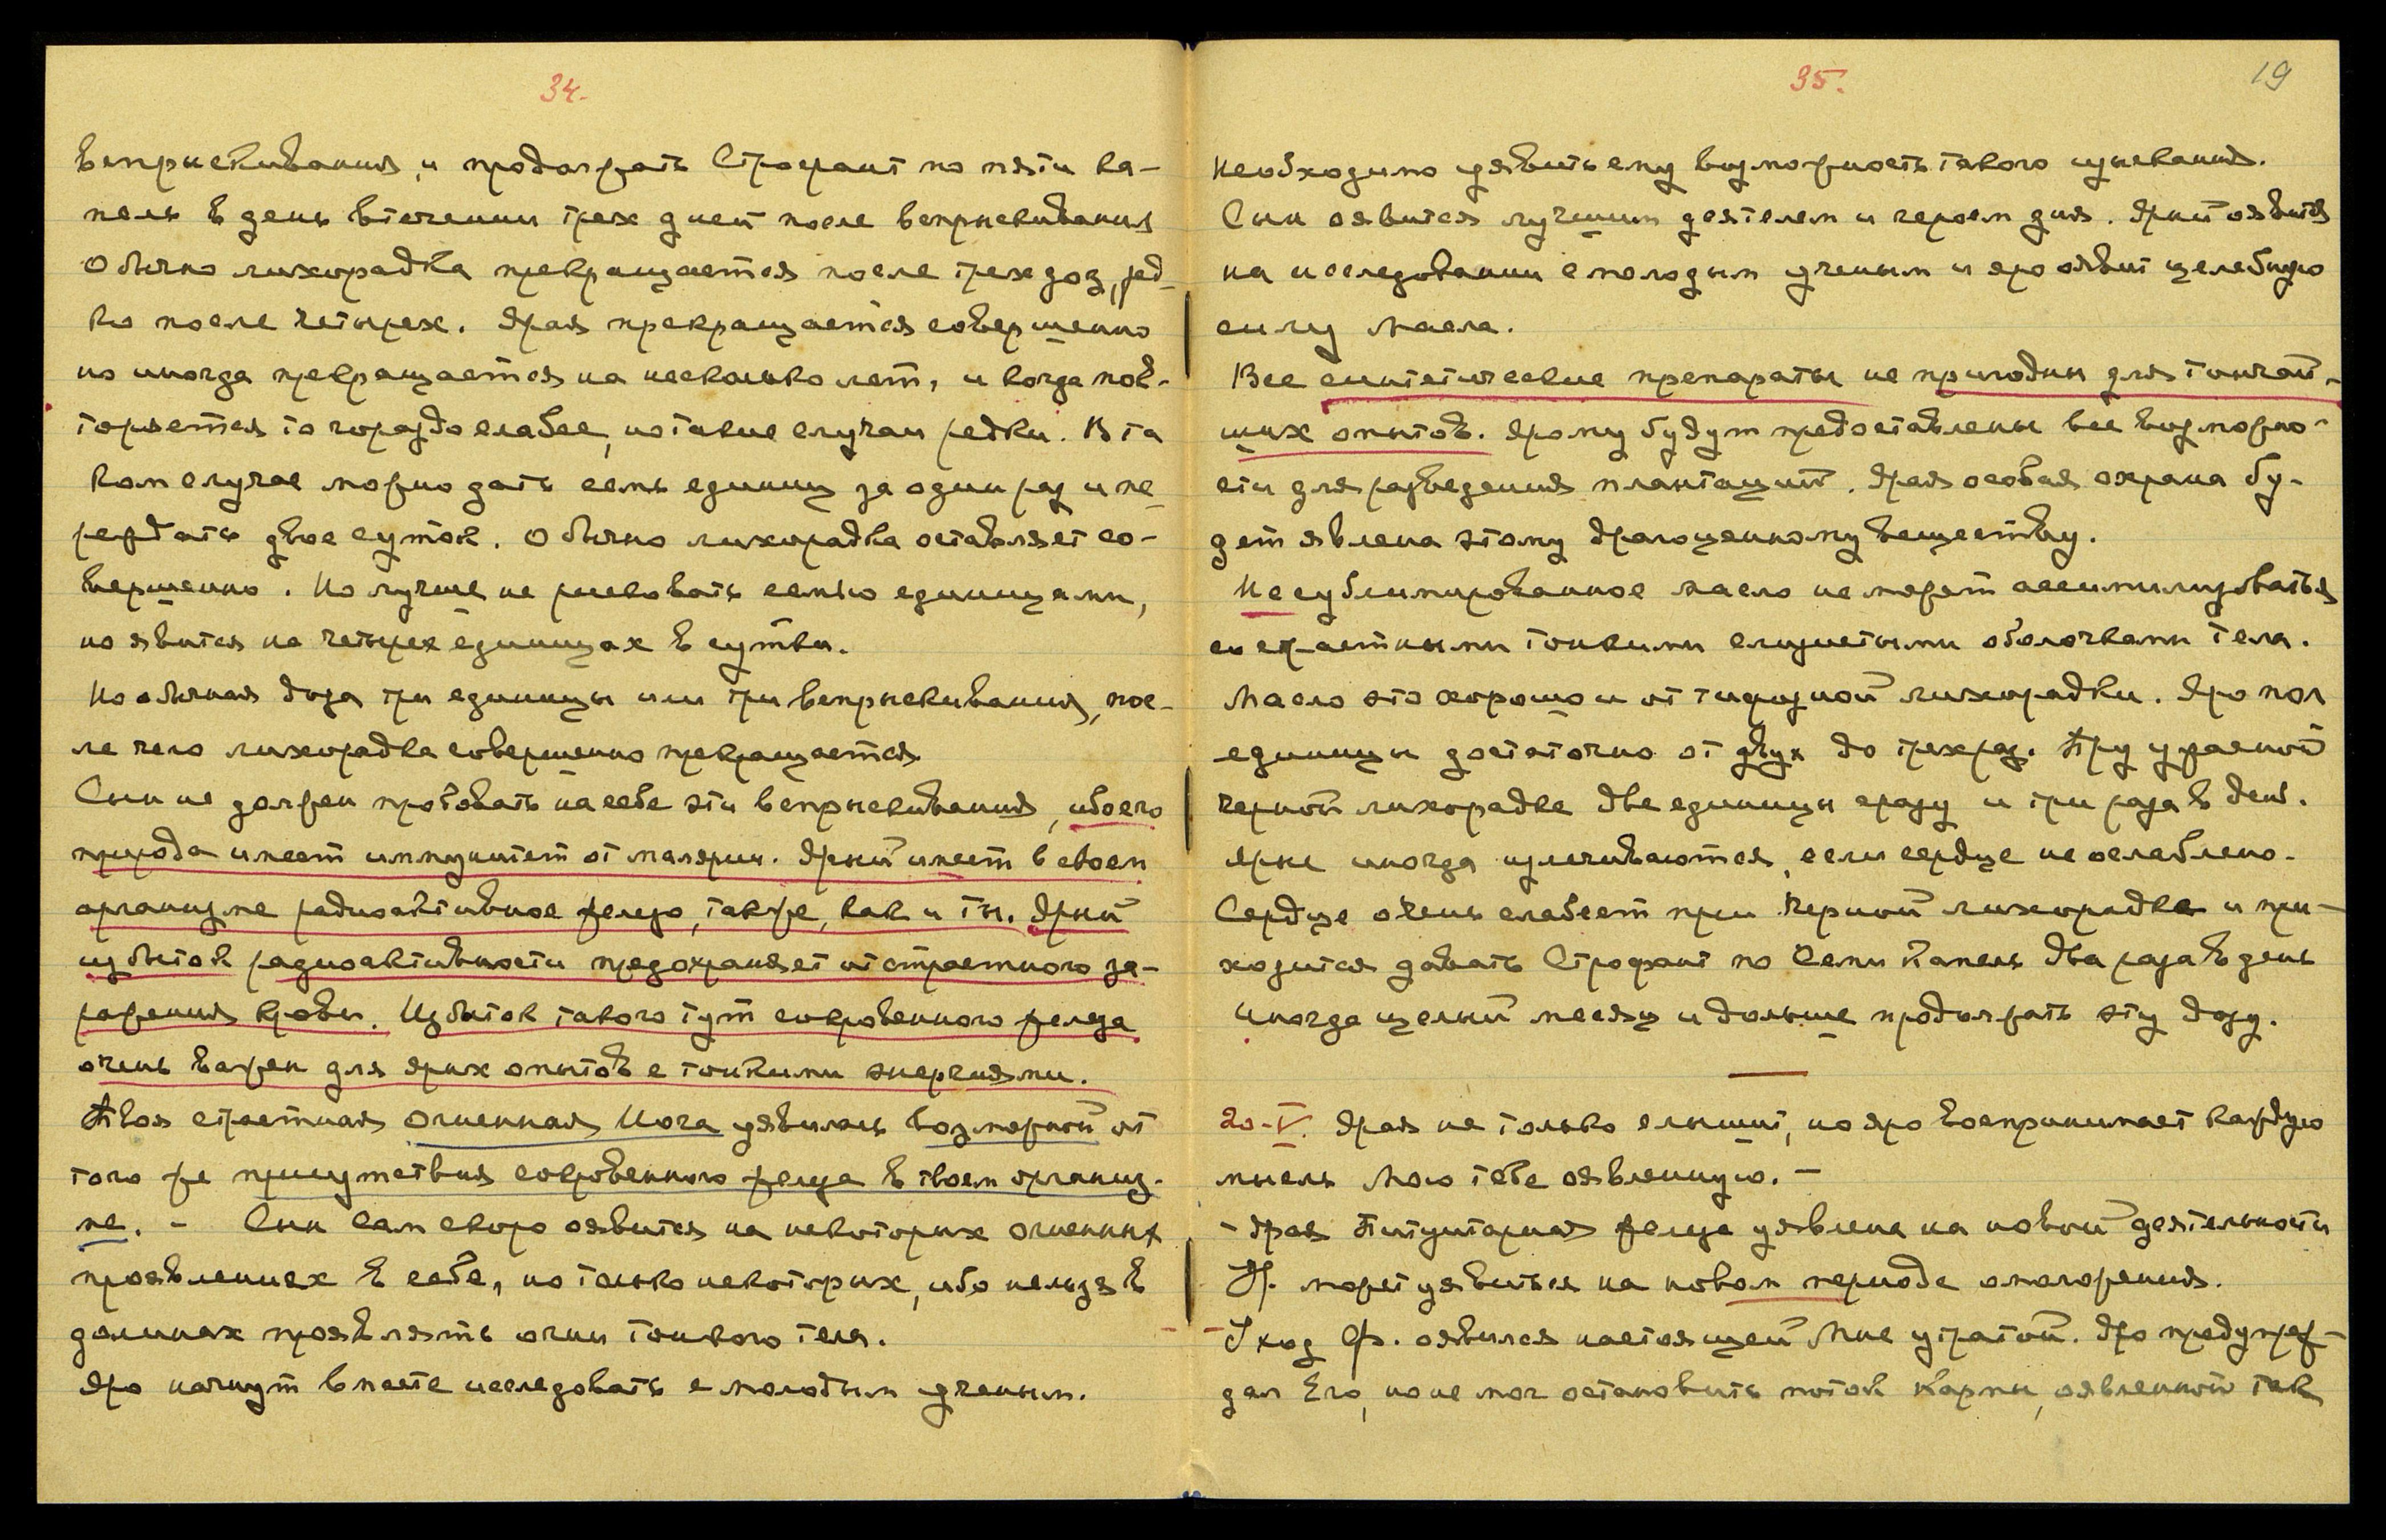 34.
впрыскивания, и продолжать Строфант по пяти ка-
пель в день втечении трех дней после впрыскивания
Обычно лихорадка прекращается после трех доз, ред-
ко после четырех. Ярая прекращается совершенно
но иногда прекращается на несколько лет, и когда пов-
торяется то гораздо слабее, но такие случаи редки. В та
ком случае можно дать семь единиц за один раз и пе-
реждать двое суток. Обычно лихорадка оставляет со-
вершенно. Но лучше не рисковать семью единицами,
но явится на четырех единицах в сутки.
Но обычная доза три единицы или три впрыскивания, пос-
ле чего лихорадка совершенно прекращается.
Сын не должен пробовать на себе эти впрыскивания, ибо его
природа имеет иммунитет от малярии. Ярый имеет в своем
организме радиоактивное железо, также, как и ты. Ярый
избыток радиоактивности предохраняет от страстного за-
ражения крови. Избыток такого тут сокровенного железа
очень важен для ярих опытов с тонкими энергиями.
Твоя страстная Огненная Йога уявилась возможной от
того же присутствия сокровенного железа в твоем организ-
ме. - Сын сам скоро оявится на некоторых огненных
проявлениях в себе, но только некоторых, ибо нельзя в
долинах проявлять огни тонкого тела.
Яро начнут вместе исследовать с молодым ученым.
35.
19
Необходимо уявить ему возможность такого изыскания.
Сын оявится лучшим деятелем и героем дня. Ярый оявится
на исследовании с молодым ученым и яро оявит целебную
силу масла.
Все синтетические препараты не пригодны для тончай-
ших опытов. Ярому будут предоставлены все возможно-
сти для разведения плантаций. Ярая особая охрана бу-
дет явлена этому драгоценному веществу.
Не сублимированное масло не может ассимилироваться
со страстными тонкими слизистыми оболочками тела.
Масло это хорошо и от тифозной лихорадки. Яро пол
единицы достаточно от двух до трех раз. При ужасной
черной лихорадке две единицы сразу и три раза в день.
Ярые иногда излечиваются, если сердце не ослаблено.
Сердце очень слабеет при черной лихорадке и при-
ходится давать Строфант по Семи Капель два раза в день
иногда целый месяц и дольше продолжать эту дозу.
20-V. Ярая не только слышит, но яро воспринимает каждую
мысль Мою тебе оявленную. -
- Ярая Питуитарная железа уявлена на новой деятельности
У. может уявиться на новом периоде омоложения.
- Уход Ф. оявился настоящей Мне утратой. Яро предупреж-
дал Его, но не мог остановить поток Кармы, оявленной так